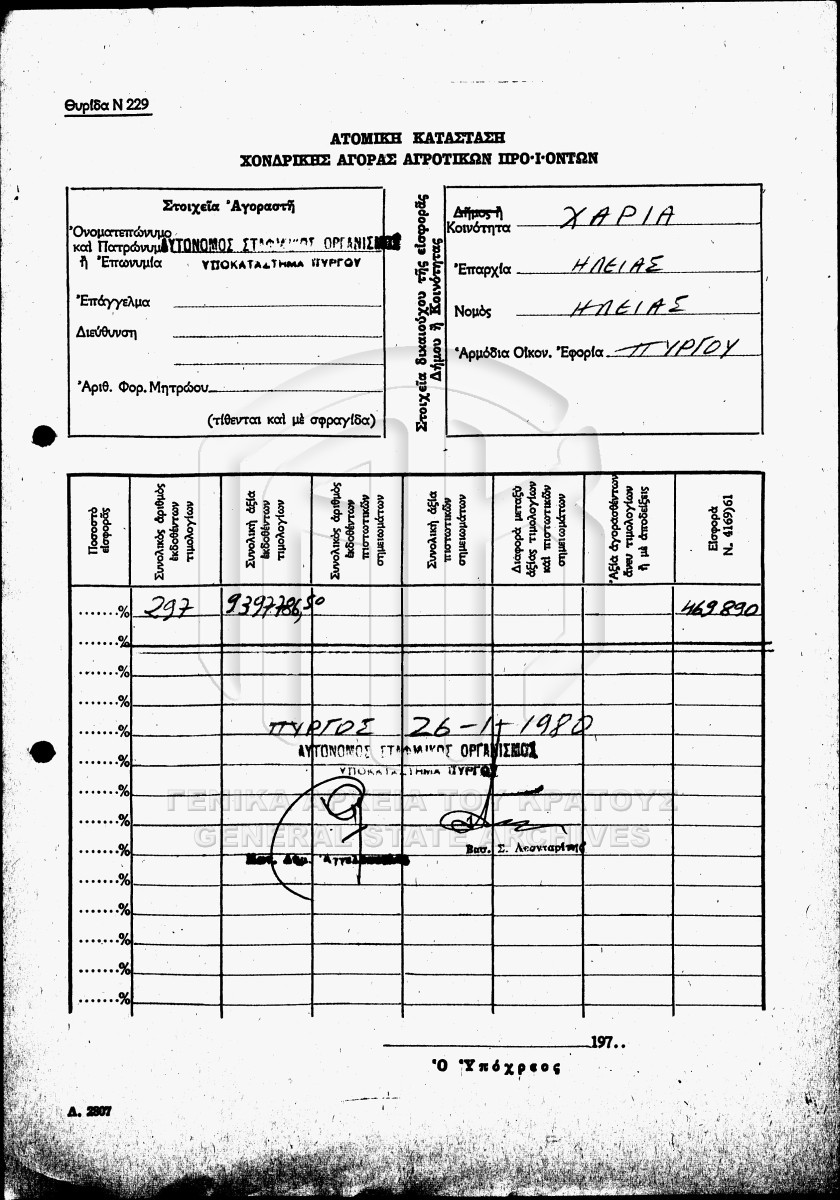 Θυρίδα Ν 229
ΑΤΟΜΙΚΗ ΚΑΤΑΣΤΑΣΗ
ΧΟΝΔΡΙΚΗΣ ΑΓΟΡΑΣ ΑΓΡΟΤΙΚΩΝ ΠΡΟ·Ι·ΟΝΤΩΝ
Στοιχεῖα Ἀγοραστῆ
Ὀνοματεπώνυμο
καὶ Πατρώνυμο ΑΥΤΟΝΟΜΟΣ ΣΤΑΦΙΔΙΚΟΣ ΟΡΓΑΝΙΣΜΟΣ
ἤ Ἐπωνυμία ΥΠΟΚΑΤΑΣΤΗΜΑ ΠΥΡΓΟΥ
Ἐπάγγελμα
Διεύθυνση
Ἀριθ. Φορ. Μητρώου
(τίθενται καὶ μὲ σφραγίδα)
Στοιχεῖα δικαιούχου τῆς εἰσφορᾶς
Δήμου ἤ Κοινότητας
Δῆμος ἤ
Κοινότητα ΧΑΡΙΑ
Ἐπαρχία ΗΛΕΙΑΣ
Νομὸς ΗΛΕΙΑΣ
Ἁρμόδια Οἰκον. Ἐφορία ΠΥΡΓΟΥ
Ποσοστὸ
εἰσφορᾶς
Συνολικὸς ἀριθμὸς
ἐκδοθέντων
τιμολογίων
Συνολικὴ ἀξία
ἐκδοθέντων
τιμολογίων
Συνολικὸς ἀριθμὸς
ἐκδοθέντων
πιστωτικῶν
σημειωμάτων
Συνολικὴ ἀξία
πιστωτικῶν
σημειωμάτων
Διαφορὰ μεταξὺ
ἀξίας τιμολογίων
καὶ πιστωτικῶν
σημειωμάτων
Ἀξία ἀγορασθέντων
ἄνευ τιμολογίων
ἤ μὲ ἀποδείξεις
Εἰσφορὰ
Ν. 4169)61
.......% 297 9397786,50 469890
.......%
.......%
.......%
.......%
.......%
.......%
.......%
.......%
.......%
.......%
.......%
.......%
.......%
ΠΥΡΓΟΣ 26-1-1980
ΑΥΤΟΝΟΜΟΣ ΣΤΑΦΙΔΙΚΟΣ ΟΡΓΑΝΙΣΜΟΣ
ΥΠΟΚΑΤΑΣΤΗΜΑ ΠΥΡΓΟΥ
ΓΕΝΙΚΑ ΑΡΧΕΙΑ ΤΟΥ ΚΡΑΤΟΥΣ
GENERAL STATE ARCHIVES
Βασ. Σ. Λεονταρίτης
197..
Ὁ Ὑπόχρεος
Δ. 2807